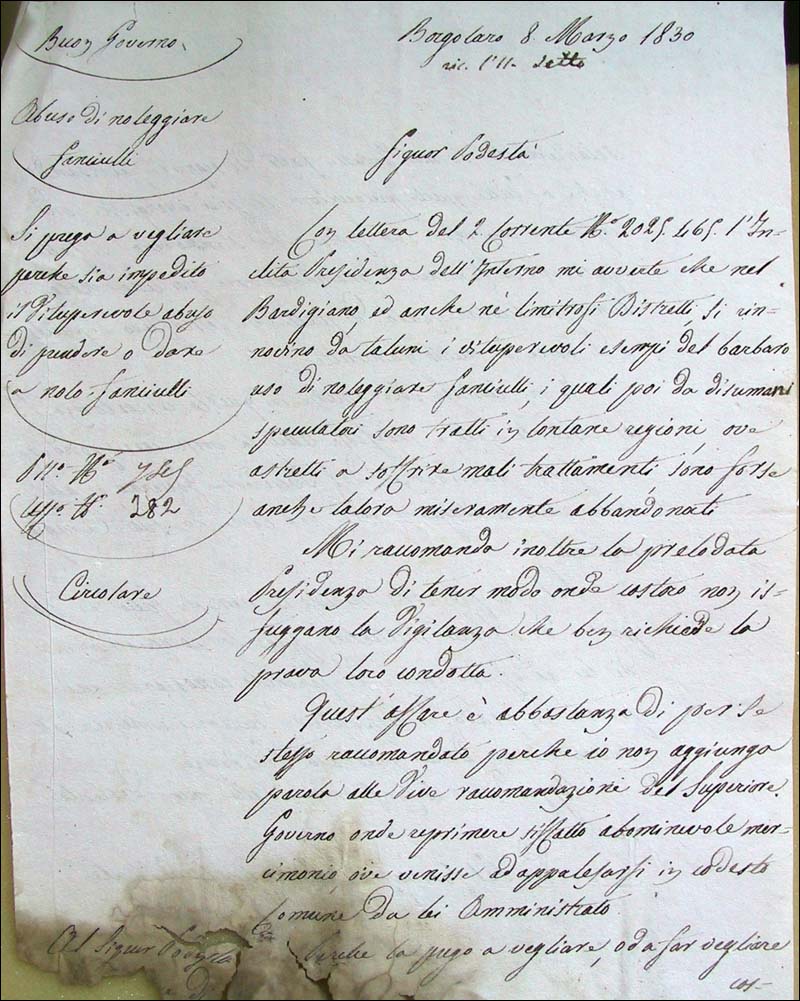 Buon Governo
Borgotaro 8. Marzo 1830
ric. l'11. detto
Abuso di noleggiare
fanciulli
Signor Podestà
Si prega a vegliare
perche sia impedito
il vituperevole abuso
di prendere o dare
a nolo fanciulli
Circolare
Con lettera del 2. Corrente N.º 2025. 465. l'In-
clita Presidenza dell'Interno mi avverte che nel
Bardigiano, ed anche nè limitrofi Distretti, si rin-
novino da taluni i vituperevoli esempi del barbaro
uso di noleggiare fanciulli, i quali poi da disumani
speculatori sono tratti in lontane regioni, ove
astretti a soffrire mali trattamenti, sono forse
anche talora miseramente abbandonati
Mi raccomanda inoltre la prelodata
Presidenza di tenir modo onde costoro non is-
fuggano la vigilanza che ben richiede la
prava loro condotta.
Quest'affare è abbastanza di per se
stesso raccomandato perche io non aggiunga
parola alle vive raccomandazioni del Superiore
Governo onde reprimere siffatto abominevole mer-
cimonio ove venisse ad appalesarsi in codesto
Comune da lei Amministrato.
Perche la prego a vegliare, od a far vegliare
cos-
Al Signor Podestà
di